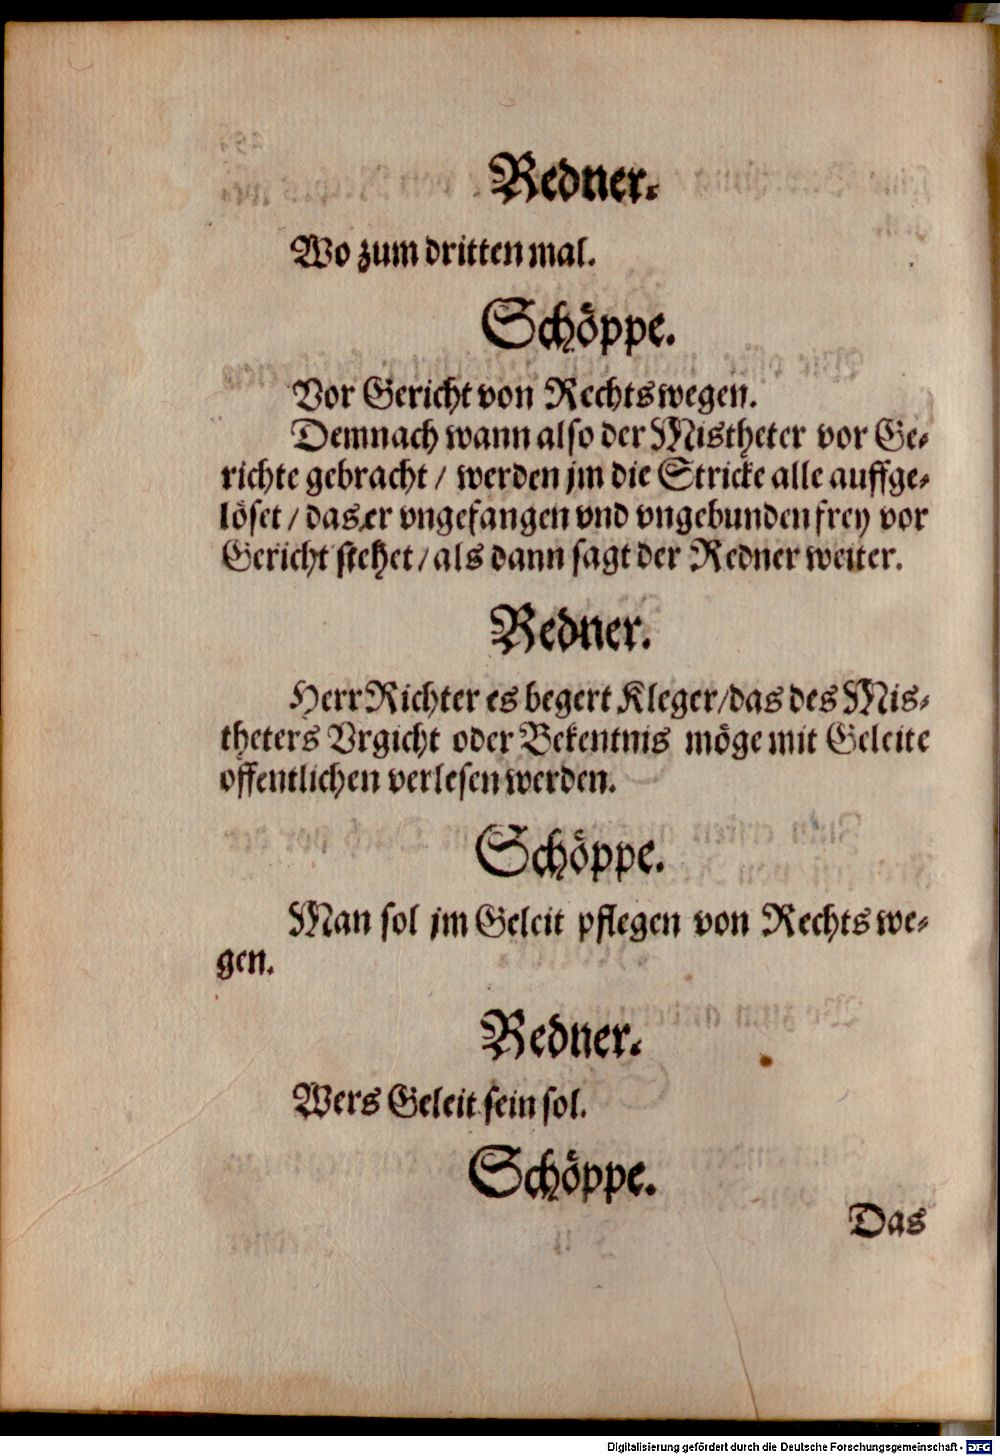 Redner.
Wo zum dritten mal.
Schöppe.
Vor Gericht von Rechts wegen.
Demnach wann also der Mistheter vor Ge-
richte gebracht / werden jm die Stricke alle auffge-
löset / das er vngefangen vnd vngebunden frey vor
Gericht stehet / als dann sagt der Redner weiter.
Redner.
Herr Richter es begert Kleger / das des Mis-
theters Vrgicht oder Bekentnis möge mit Geleite
offentlichen verlesen werden.
Schöppe.
Man sol jm Geleit pflegen von Rechts we-
gen.
Redner.
Wers Geleit sein sol.
Schöppe.
Das
Digitalisierung gefördert durch die Deutsche Forschungsgemeinschaft - DFG